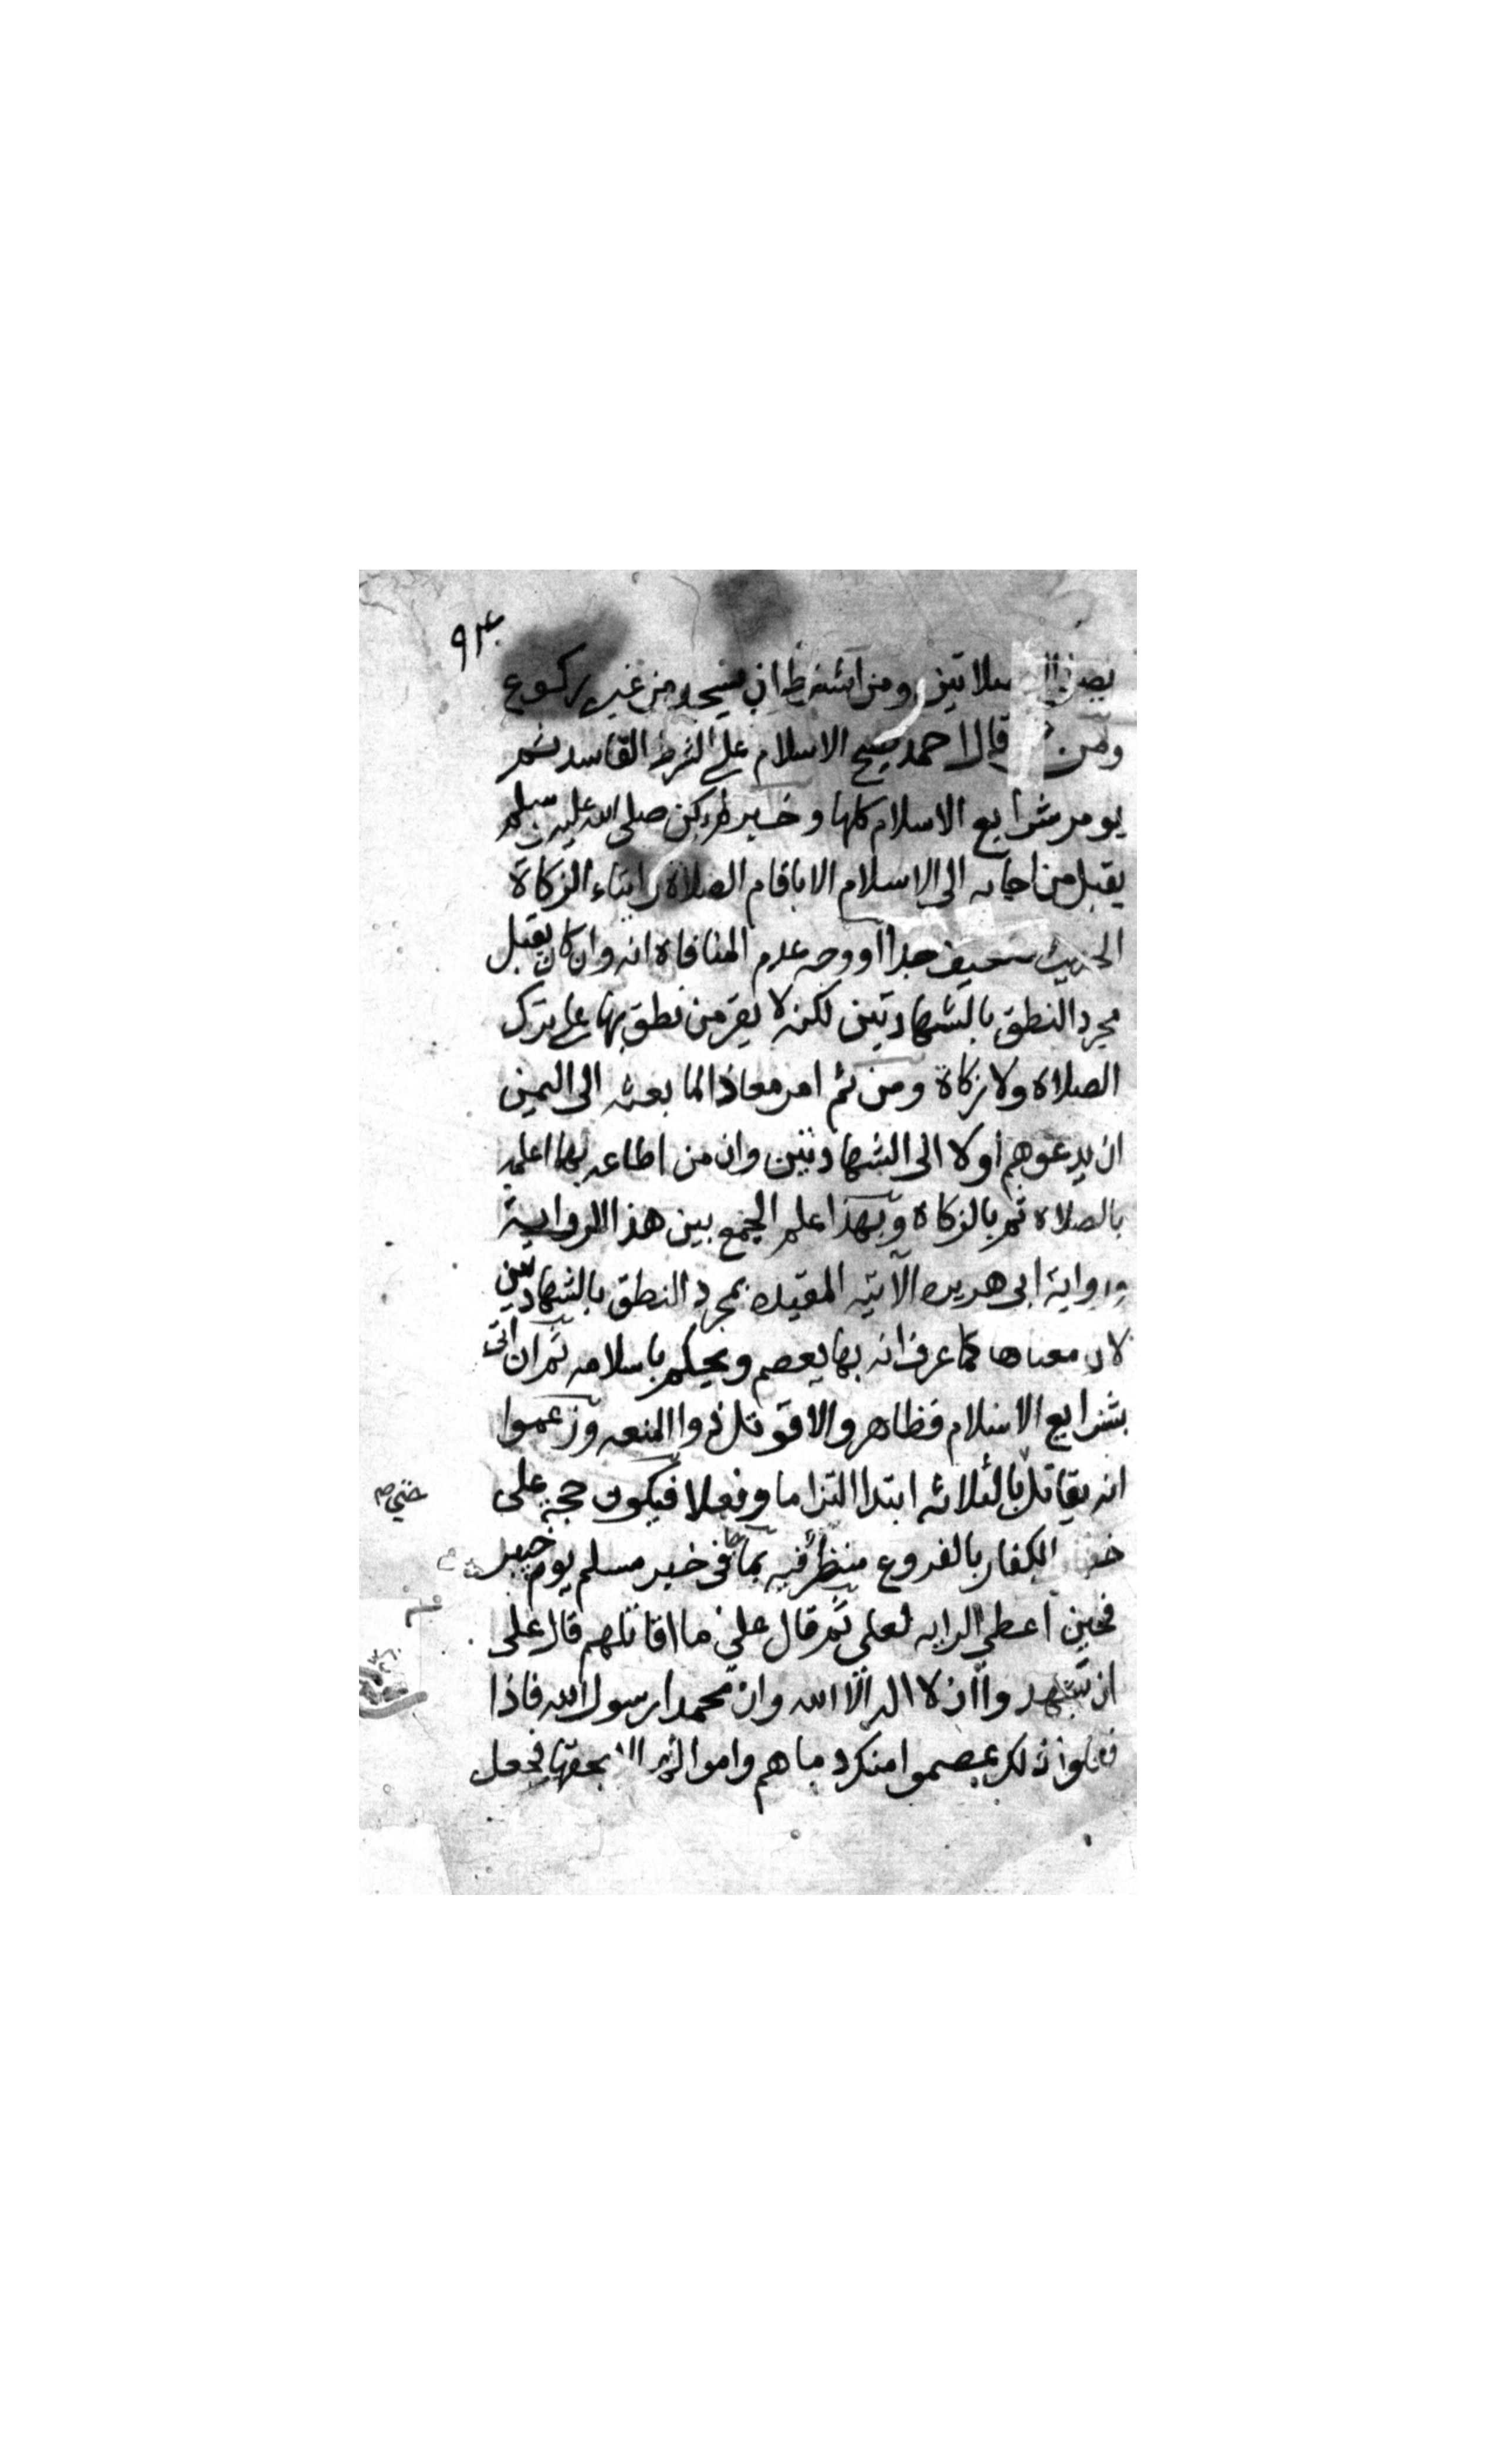 ٩٣
ومن اشترط ان يسجد من غير ركوع
ومن قال احمد يصح الاسلام على الشرط الفاسد ثم
يومر بشرايع الاسلام كلها و خبر لم يكن صلى الله عليه وسلم
يقبل من اجابه الى الاسلام الا باقام الصلاة وايتاء الزكاة
الحديث ضعيف جدا ووجه عدم المنافاة انه وان كان يقبل
مجرد النطق بالشهادتين لكنه لا يقر من نطق بها على ترك
الصلاة ولا زكاة ومن ثم امر معاذا لما بعثه الى اليمن
ان يدعوهم اولا الى الشهادتين وان من اطاعه بها اعلمه
بالصلاه ثم بالزكاه وبهذا علم الجمع بين هذا الرواية
ورواية ابى هريره الآتيه المقيده بمجرد النطق بالشهادتين
لان معناها كما عرف انه بها يعصم ويحكم باسلامه ثم ان اتى
بشرايع الاسلام فظاهر والا قوتل ذوا المنعه وزعموا
انه يقاتل بالثلاثه ابتدا التزاما وفعلا فيكون حجة على
الكفار بالفروع ينظر فيه بما فى خبر مسلم يوم خيبر
فحين اعطى الرايه لعلى ثم قال على ما اقاتلهم قال على
ان يشهدوا ان لا اله الا الله وان محمدا رسول الله فاذا
فعلوا ذلك عصموا منك دماهم واموالهم الا بحقها فجعل